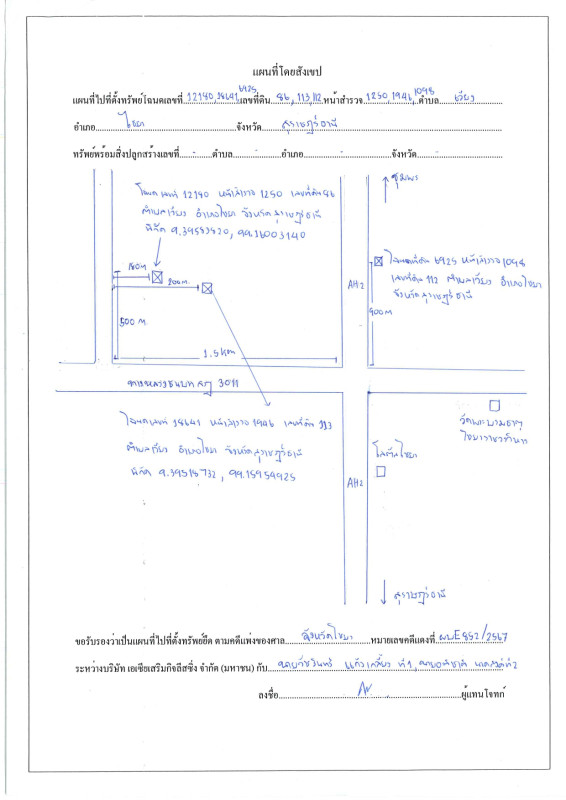 แผนที่โดยสังเขป
แผนที่ไปที่ตั้งทรัพย์โฉนดเลขที่ 12180, 18641, 6925 เลขที่ดิน 86, 113, 112 หน้าสำรวจ 1250, 1946, 1098 ตำบล เวียง
อำเภอ ไชยา จังหวัด สุราษฎร์ธานี
ทรัพย์พร้อมสิ่งปลูกสร้างเลขที่ - ตำบล - อำเภอ - จังหวัด -
โฉนดเลขที่ 12180 หน้าสำรวจ 1250 เลขที่ดิน 86
ตำบลเวียง อำเภอไชยา จังหวัดสุราษฎร์ธานี
พิกัด 9.39553520, 99.16003140
ชุมพร
โฉนดที่ดิน 6925 หน้าสำรวจ 1098
เลขที่ดิน 112 ตำบลเวียง อำเภอไชยา
จังหวัดสุราษฎร์ธานี
180m
200m.
AH2
400m
500m.
1.5km
ทางหลวงชนบท สฎ 3011
โฉนดเลขที่ 18641 หน้าสำรวจ 1946 เลขที่ดิน 113
ตำบลเวียง อำเภอไชยา จังหวัดสุราษฎร์ธานี
พิกัด 9.39515732, 99.15954925
วัดพระบรมธาตุ
ไชยาราชวรวิหาร
โลตัสไชยา
AH2
สุราษฎร์ธานี
ขอรับรองว่าเป็นแผนที่ไปที่ตั้งทรัพย์ยึด ตามคดีแพ่งของศาล จังหวัดไชยา หมายเลขคดีแดงที่ ผบE852/2567
ระหว่างบริษัท เอเซียเสริมกิจลีสซิ่ง จำกัด (มหาชน) กับ ที่1, ที่2
ลงชื่อ ผู้แทนโจทก์